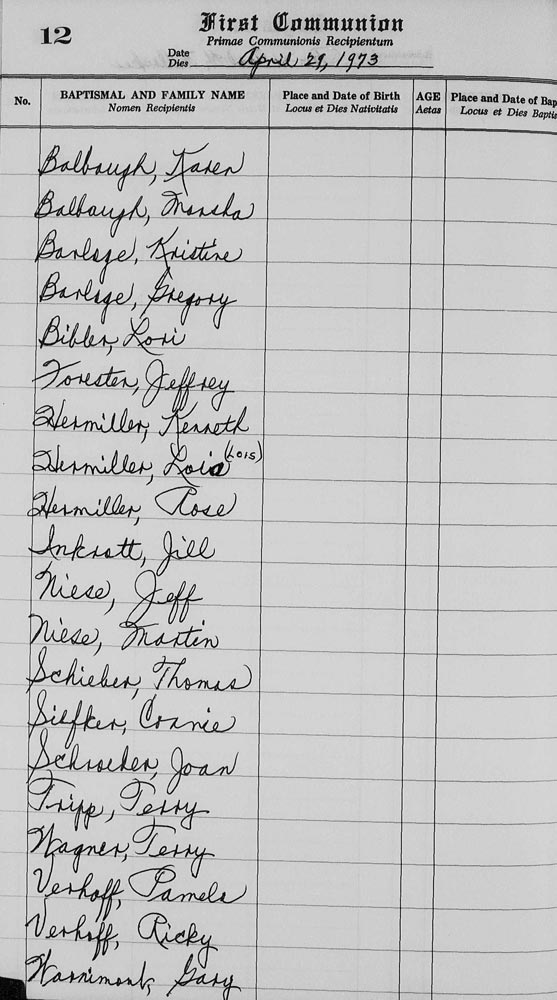 12
First Communion
Primae Communionis Recipientum
Date
Dies April 29, 1973
No.
BAPTISMAL AND FAMILY NAME
Nomen Recipientis
Place and Date of Birth
Locus et Dies Nativitatis
AGE
Aetas
Place and Date of Bap
Locus et Dies Baptis
Balbaugh, Karen
Balbaugh, Marsha
Barlage, Kristine
Barlage, Gregory
Bibler, Lori
Forester, Jeffrey
Hermiller, Kenneth
Hermiller, Lois (Lois)
Hermiller, Rose
Inkrott, Jill
Niese, Jeff
Niese, Martin
Schieber, Thomas
Siefker, Connie
Schroeder, Joan
Tripp, Terry
Wagner, Terry
Verhoff, Pamela
Verhoff, Ricky
Warnimont, Gary